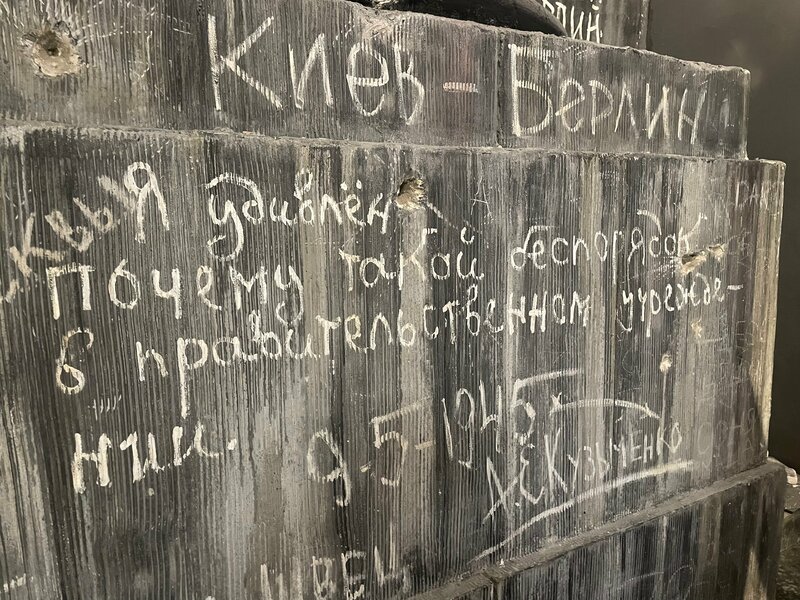 Киев - Берлин
Я удивлён
почему такой беспорядок
в правительственном учрежде-
нии. 9.5-1945-
Х.Е Кузьченко